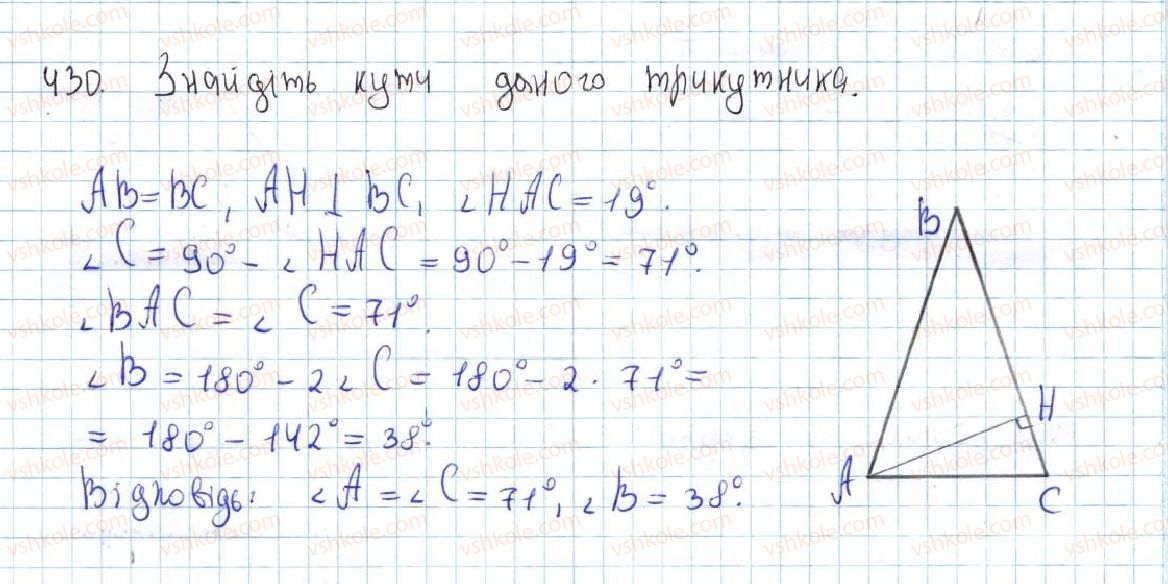 430. Знайдіть кути даного трикутника.
AB = BC, AH ⊥ BC, ∠HAC = 19°.
∠C = 90° - ∠HAC = 90° - 19° = 71°.
∠BAC = ∠C = 71°.
∠B = 180° - 2∠C = 180° - 2 · 71° =
= 180° - 142° = 38°.
Відповідь: ∠A = ∠C = 71°, ∠B = 38°.
B
H
A
C
vshkole.com